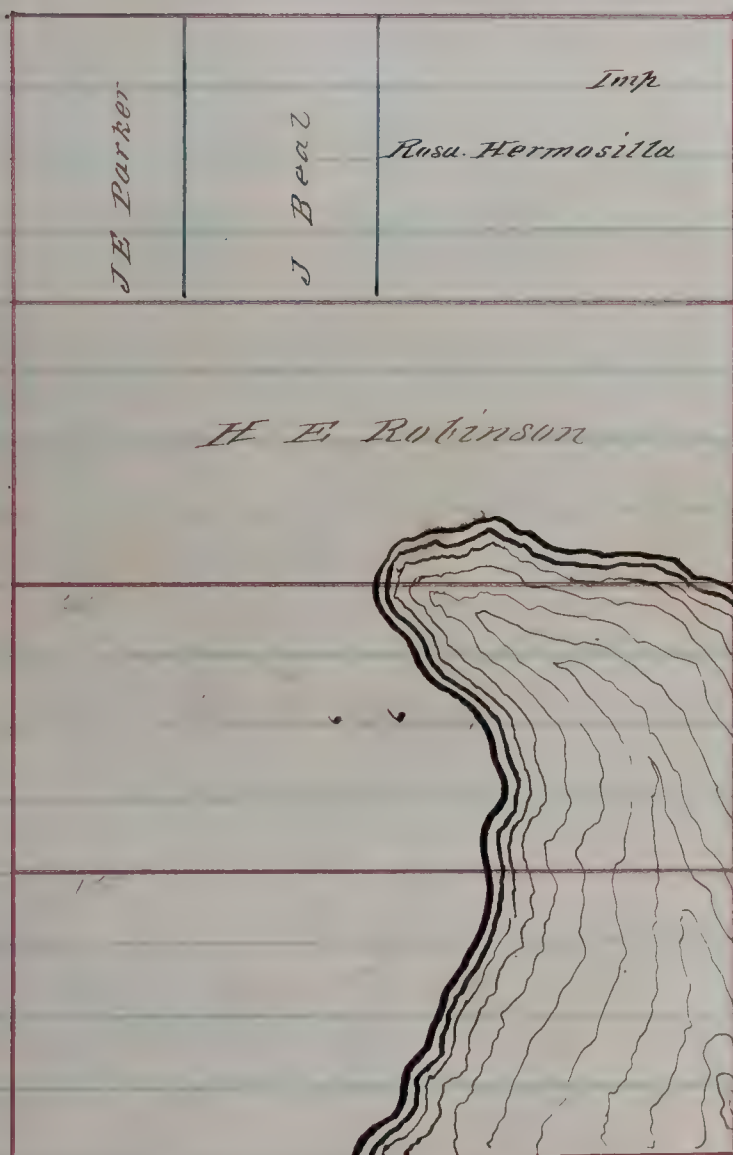 JE Parker
J Beal
Imp
Rosa. Hermosilla
H E Robinson